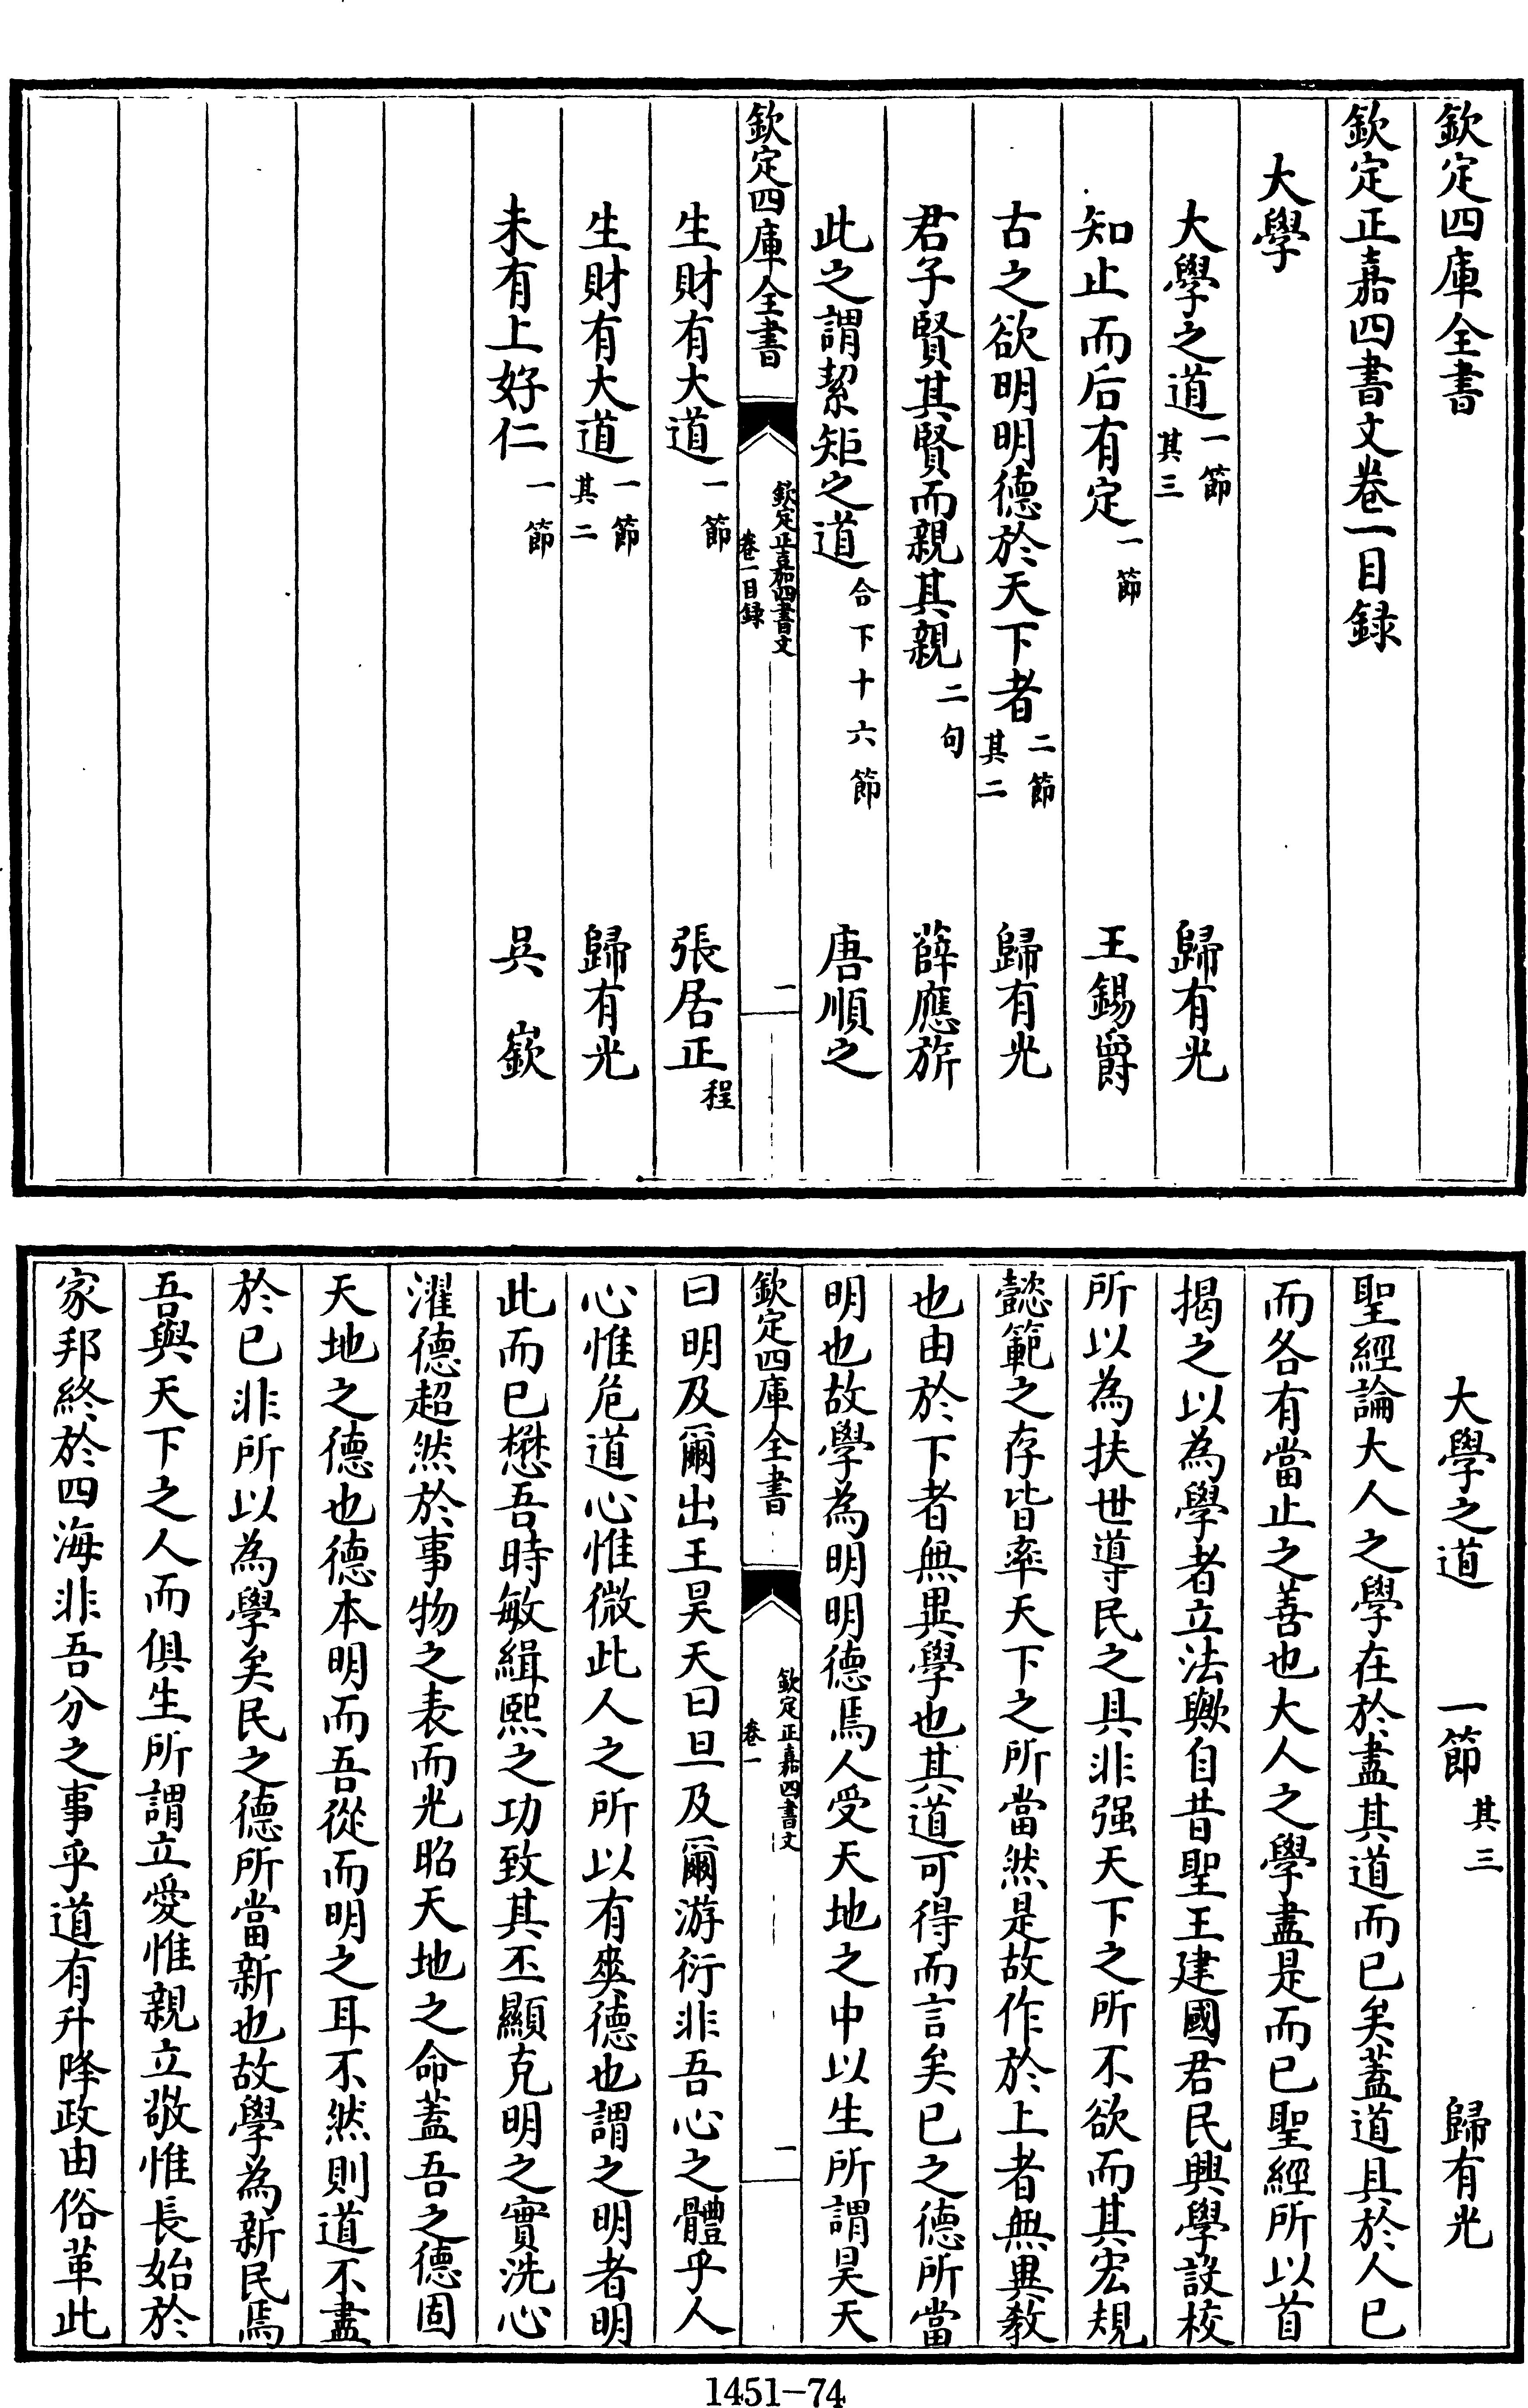 欽定四庫全書
欽定正嘉四書文卷一目録
大學
大學之道一節其三 歸有光
知止而后有定一節 王錫爵
古之欲明明德於天下者二節其二 歸有光
君子賢其賢而親其親二句 薛應旂
此之謂絜矩之道合下十六節 唐順之
欽定四庫全書 欽定正嘉四書文卷一目録 一
生財有大道一節 張居正程
生財有大道一節其二 歸有光
未有上好仁一節 吳嶔
大學之道 一節其三 歸有光
聖經論大人之學在於盡其道而已矣蓋道具於人已
而各有當止之善也大人之學盡是而已聖經所以首
揭之以為學者立法歟自昔聖王建國君民興學設校
所以為扶世導民之具非强天下之所不欲而其宏規
懿範之存皆率天下之所當然是故作於上者無異教
也由於下者無異學也其道可得而言矣已之德所當
明也故學為明明德焉人受天地之中以生所謂昊天
欽定四庫全書 欽定正嘉四書文卷一 一
曰明及爾出王昊天曰旦及爾游衍非吾心之體乎人
心惟危道心惟微此人之所以有爽德也謂之明者明
此而已懋吾時敏緝熙之功致其丕顯克明之實洗心
濯德超然於事物之表而光昭天地之命蓋吾之德固
天地之德也德本明而吾從而明之耳不然則道不盡
於已非所以為學矣民之德所當新也故學為新民焉
吾與天下之人而俱生所謂立愛惟親立敬惟長始於
家邦終於四海非吾分之事乎道有升降政由俗革此
1451-74